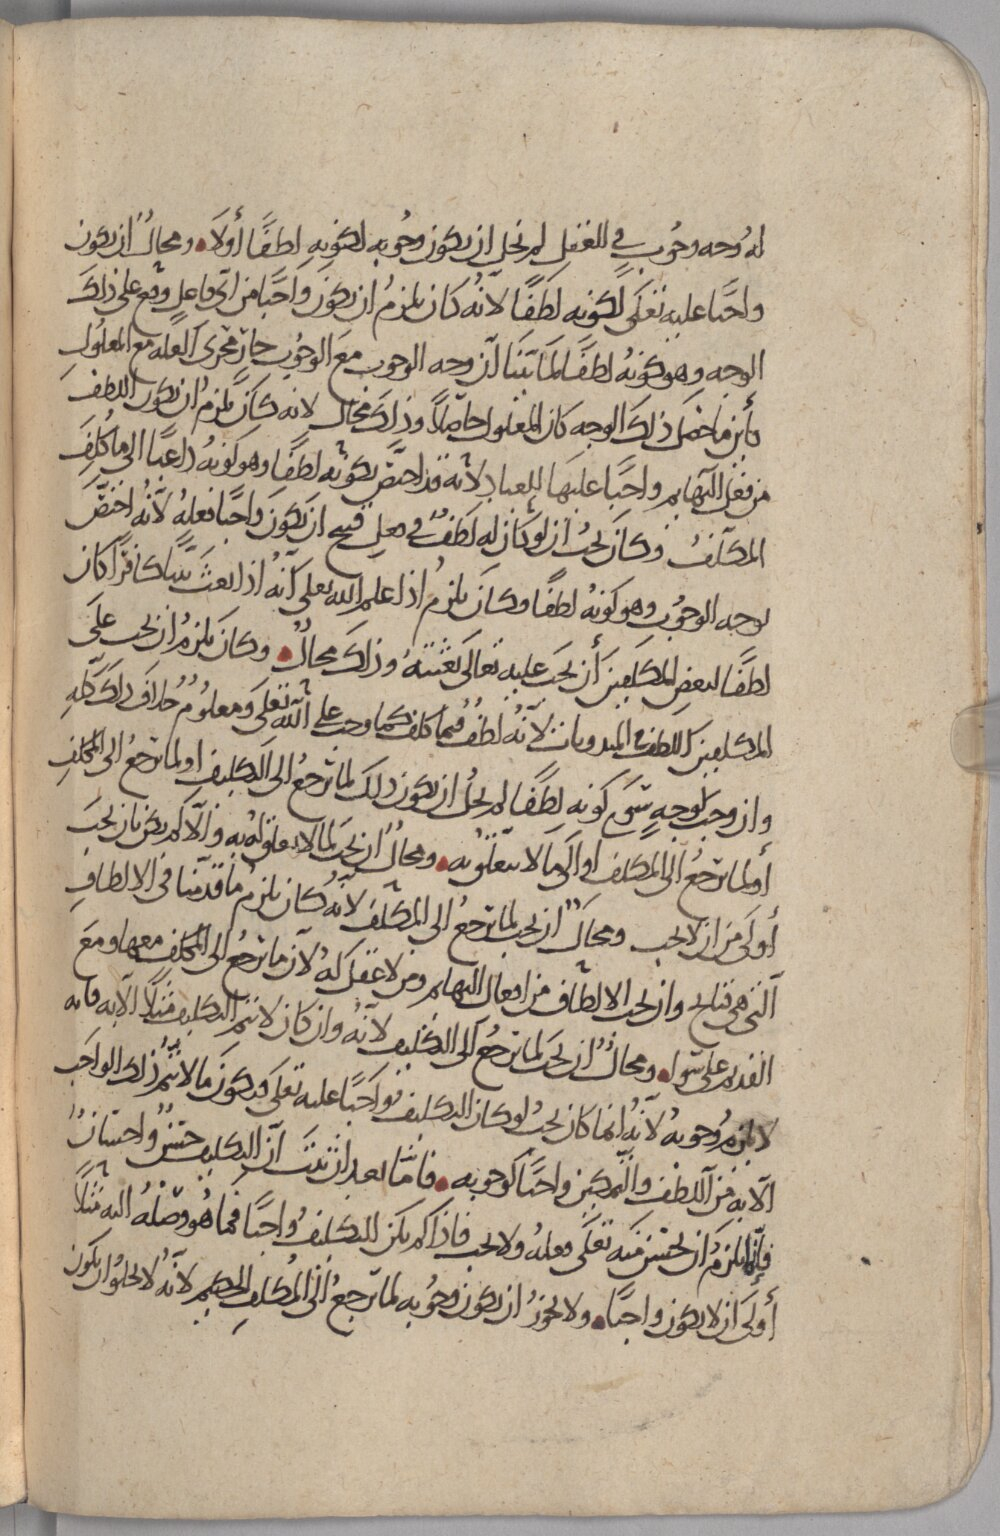 له وجه وجوب في للعقل لم يخل ان يكون وجوبه لكونه لطفًا أولا ومحالٌ ان يكون
واجبًا عليه تعلى لكونه لطفًا لأنه كان يلزمُ ان يكون واجبًا من اي فاعل وقع على ذلك
الوجه وهو كونهُ لطفًا لما بيّنا أن وجه الوجوب مع الوجوب جارٍ مجرى العلة مع المعلول
بأين ما حصل ذلك الوجه كان المعلول حاصلًا وذلك محال لانه كان يلزمُ ان يكون اللطف
من فعل البهايم واجبًا عليها للعباد لأنه قد اختصّ بكونه لطفًا وهو كونهُ داعيًا الى ما كلف
المكلفُ وكان يجبُ ان لو كان له لطفٌ في فعل قبيح ان يكون واجبًا فعلهُ لأنهُ اختصّ
بوجه الوجوب وهو كونهُ لطفًا وكان يلزمُ اذا علم الله تعلى أنهُ اذا بعث نبيّا كافرًا كان
لطفًا لبعض المكلفين أن يجب عليه تعالى بعثتهُ وذلك محالٌ وكان يلزمُ ان يجب على
المكلفين اللطف المندوبات لأنهُ لطفٌ فيما كلف كما وجب على الله تعلى ومعلومٌ خلاف ذلك كلّه
وان وجب لوجهٍ سوى كونه لطفًا لم يخلُ ان يكون ذلك لما ترجعُ الى التكليف او لما ترجعُ الى المكلفِ
أو لما ترجعُ الى المكلف او الى ما لا يتعلق به ومحالٌ ان يجب لما لا تعلق لهُ به والا لم يكن بان يجب
أولى من ان لا يجب ومحالٌ ان يجب لما ترجع الى المكلف لأنهُ كان يلزم ما قدمنا في الالطافِ
التي هي قبايح وان يجب الالطاف من افعال البهايم ومن لا عقل لهُ لأن ما ترجعُ الى المكلف معها ومع
القديم على سواء ومحالٌ ان يجب لما ترجعُ الى التكليف لأنهُ وان كان لا يتم التكليف مثلًا الا به فانه
لا يلزمُ وجوبهُ لأنهُ انما كان يجبُ لو كان التكليفُ واجبًا عليه تعلى فيكون ما لا يتمّ ذلك الواجب
الا به من اللطف والتمكين واجبًا كوجوبه فامّا بعد ان ثبت أن التكليف حسنٌ واحسانٌ
فإنما يلزمُ ان يحسن منه تعلى فعلهُ ولا يجب فاذا لم يكن التكليفُ واجبًا فما هو وصلهُ اليه مثلًا
أولى ان لا يكون واجبًا ولا يجوزُ ان يكون وجوبه لما ترجعُ الى المكلفِ الحكيم لأنهُ لا يخلوُا ان يكون